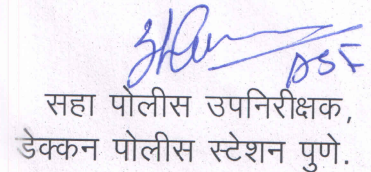 ASI
सहा पोलीस उपनिरीक्षक,
डेक्कन पोलीस स्टेशन पुणे.